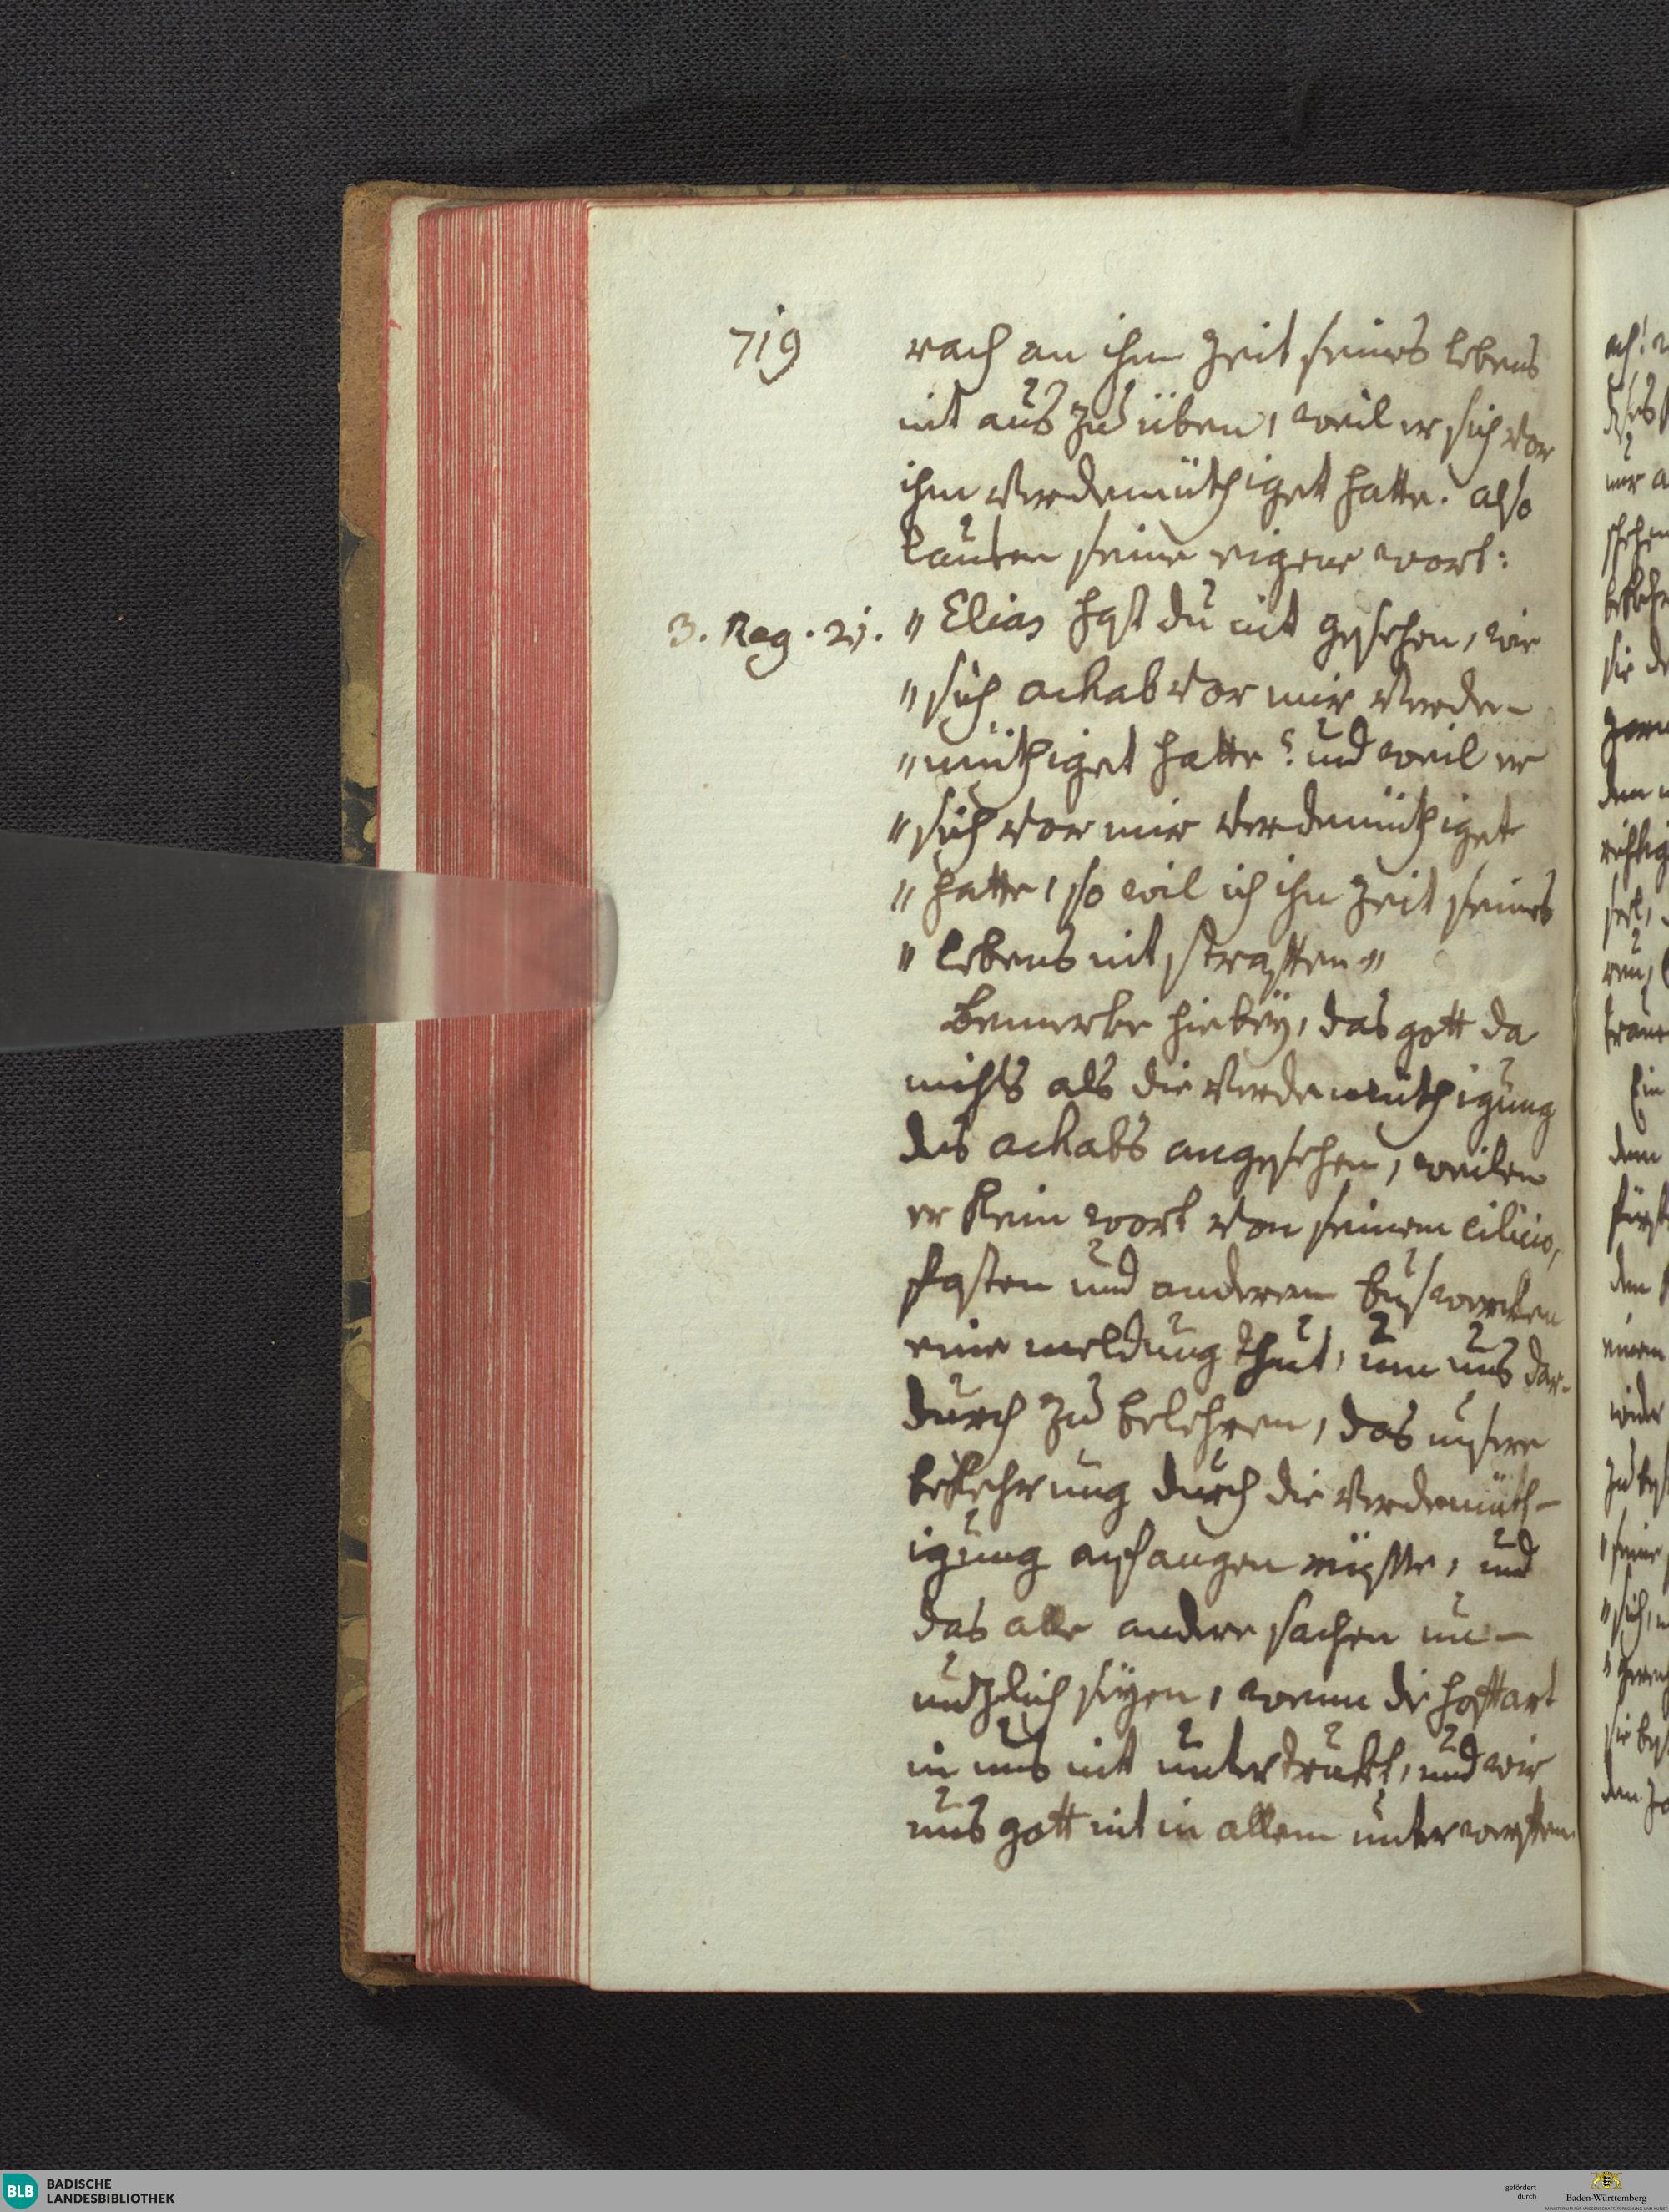 719
rach an ihm zeit seines lebens
nit aus zu üben, weil er sich vor
ihm verdemüthiget hatte. also
lauten seine eigene wort:
3. Reg. 21. " Elias hast du nit gesehen, wie
" sich achab vor mir verde-
" müthiget hatte? und weil er
" sich vor mir verdemüthiget
" hatte, so wil ich ihn zeit seines
" lebens nit straffen "
Bemerke hiebey, das gott da
nichts als die verdemüthigung
des achabs angesehen, weilen
er kein wort von seinem cilicio,
fasten und anderen buswercken
eine meldung thut, um uns dar-
durch zu belehren, das unsere
bekehrung durch die verdemüth-
igung anfangen müste, und
das alle andere sachen un-
nutzlich seyen, wenn die hoffart
in uns nit untertrukt, und wir
uns gott nit in allem unterwerffen
BLB BADISCHE
LANDESBIBLIOTHEK
gefördert
durch
Baden-Württemberg